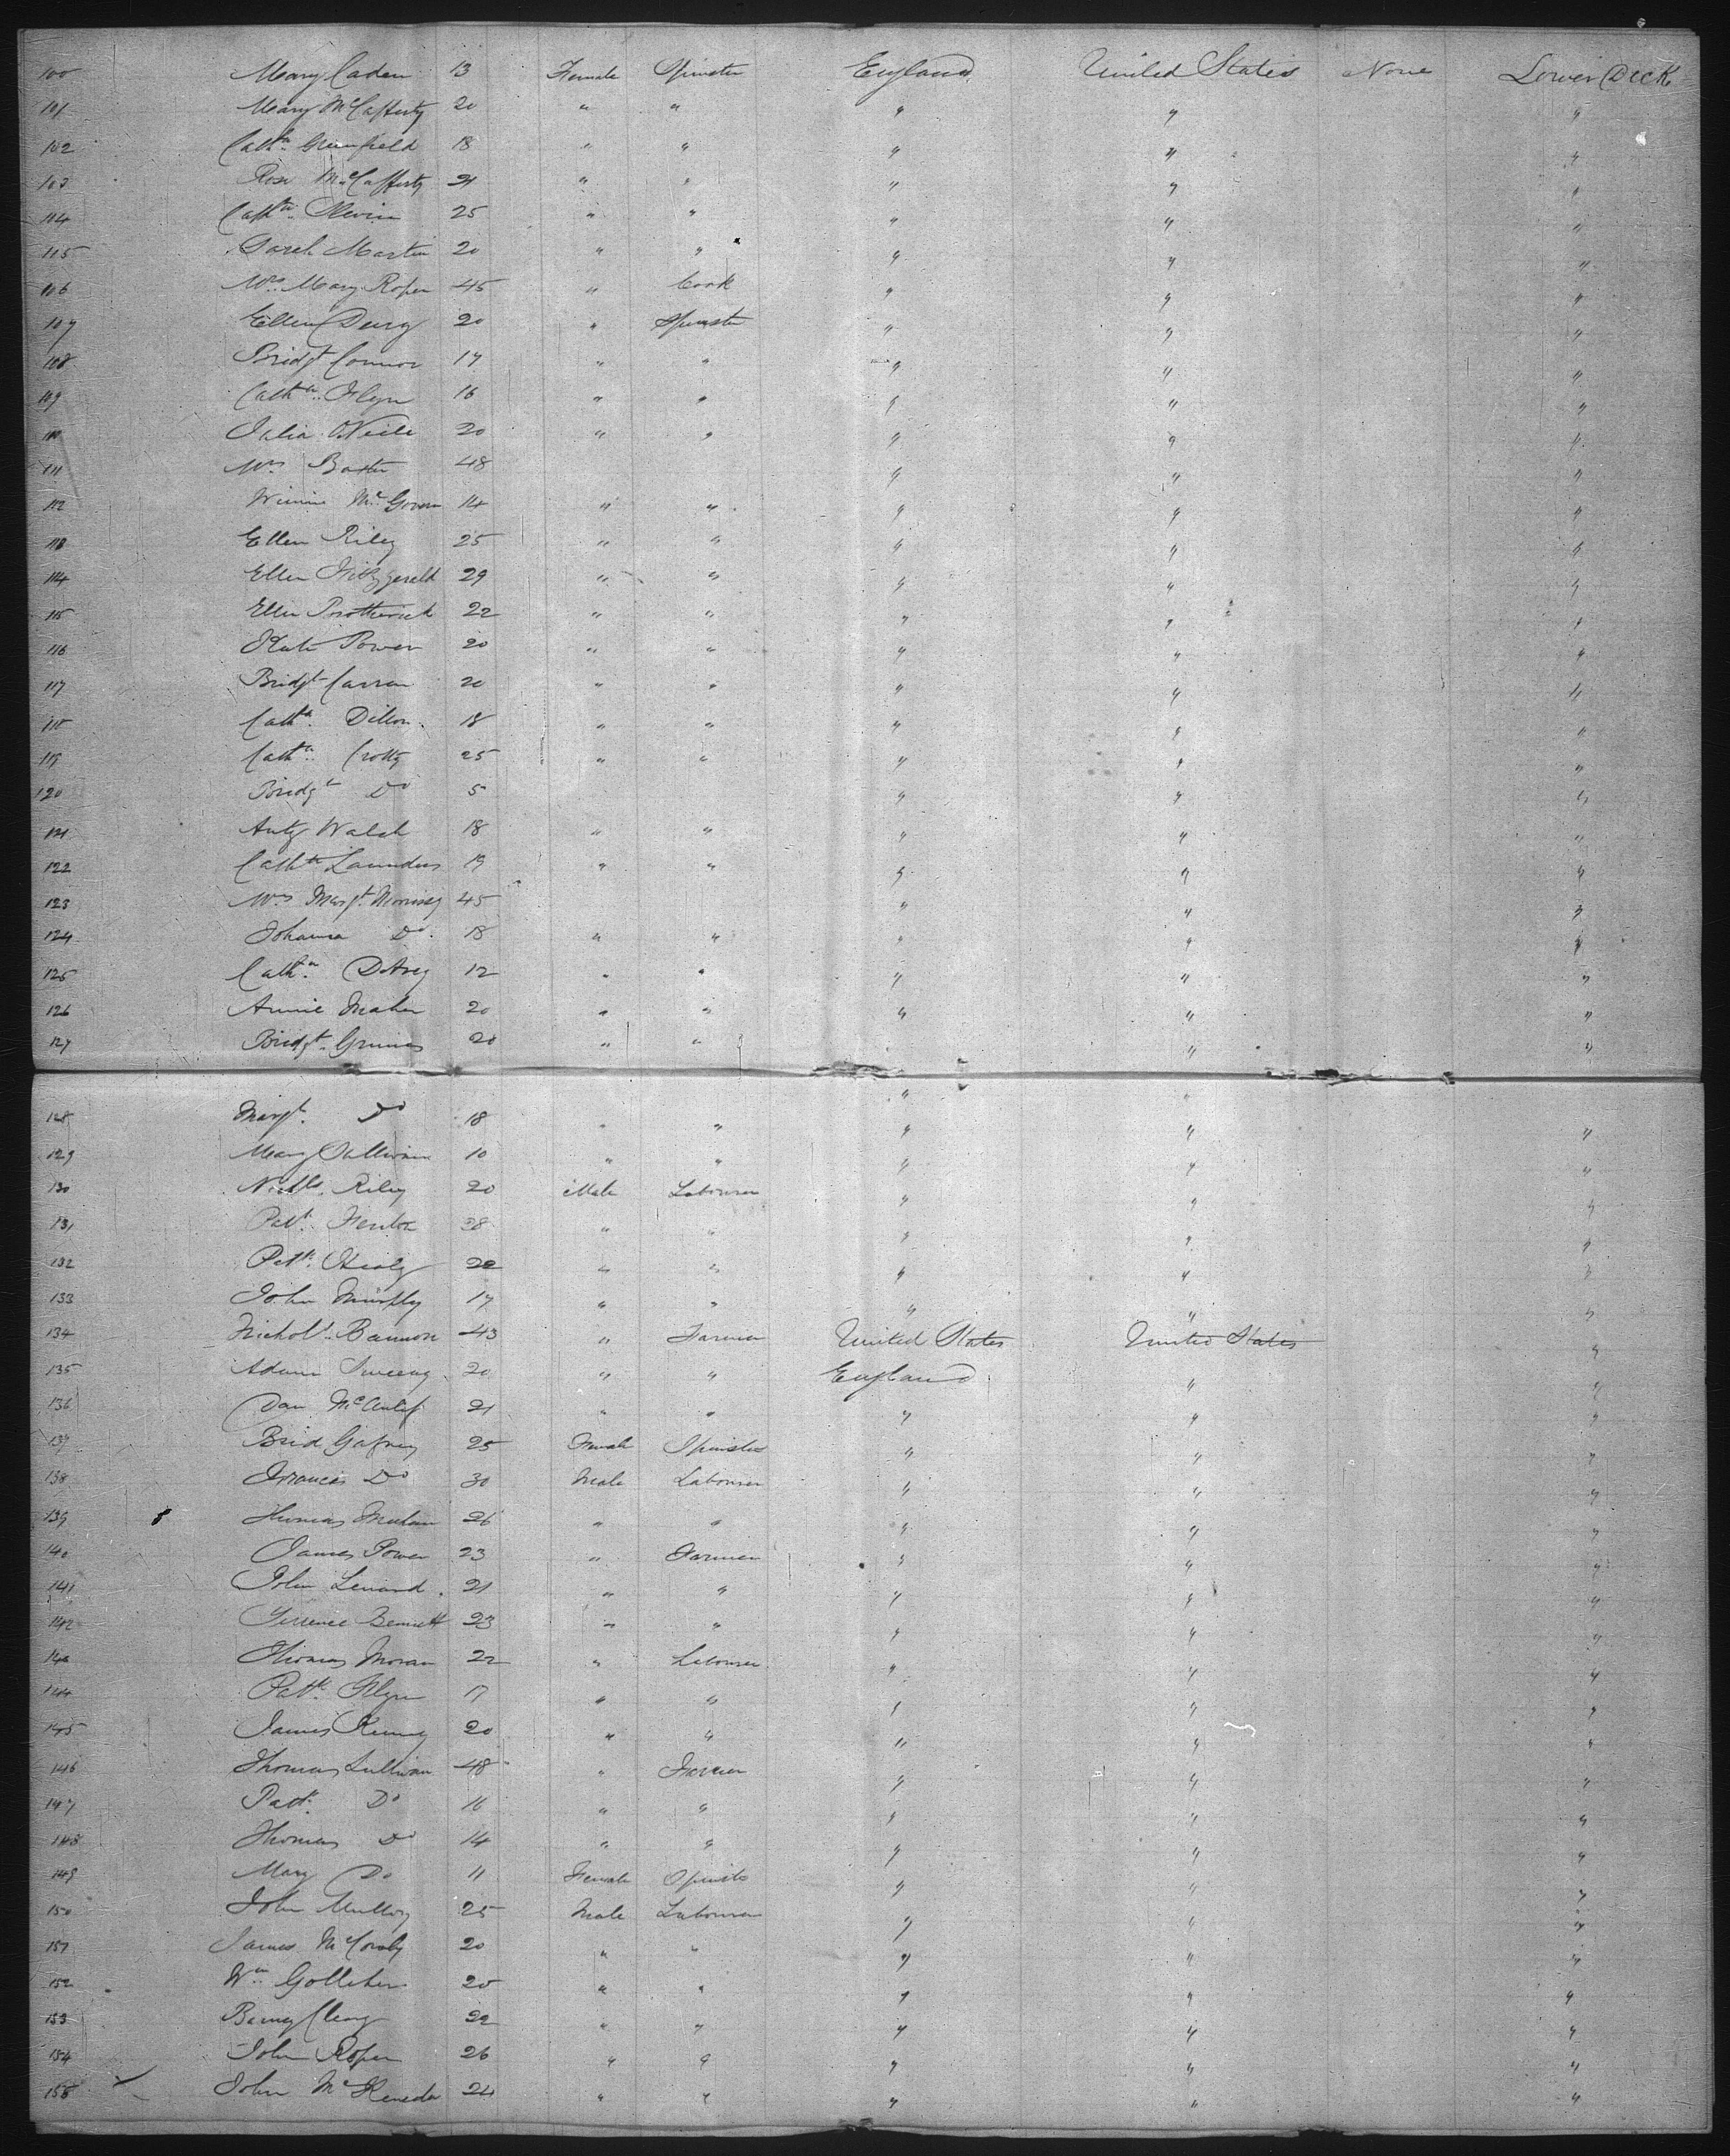 100 Mary Caden 13 Female Spinster England United States None Lower Deck
101 Mary McCafferty 20 " " " " "
102 Cathn Greenfield 18 " " " " "
103 Rose McCafferty 21 " " " " "
104 Cathn 25 " " " " "
105 Sarah Martin 20 " " " " "
106 Mrs Mary Roper 45 " Cook " " "
107 Ellen 20 " Spinster " " "
108 Bridgt Connor 17 " " " " "
109 Cathn Flyn 16 " " " " "
110 Julia O'Neile 20 " " " " "
111 Mrs 48 " " "
112 Winnie McGovern 14 " " " " "
113 Ellen Riley 25 " " " " "
114 Ellen Fitzgerald 29 " " " " "
115 Ellen 22 " " " " "
116 Kate Power 20 " " " " "
117 Bridgt Curran 20 " " " " "
118 Cathn Dillon 18 " " " " "
119 Cathn Crotty 25 " " " " "
120 Bridgt Do 5 " " "
121 Anty Walsh 18 " " " " "
122 Cathn Saunders 19 " " " " "
123 Mrs Margt Morrissy 45 " " "
124 Johanna Do 18 " " " " "
125 Cathn 12 " " " " "
126 Annie Maher 20 " " " " "
127 Bridgt Grimes 20 " " " " "
128 Margt Do 18 " " " " "
129 Mary Sullivan 10 " " " " "
130 Nichls Riley 20 Male Labourer " " "
131 Patk Fenton 38 " " " " "
132 Patk Healy 22 " " " " "
133 John Murphy 17 " " " " "
134 Nichols Bannon 43 " Farmer United States United States "
135 Adam Sweeny 20 " " England " "
136 Dan McAulif 21 " " " " "
137 Brid Gafney 25 Female Spinster " " "
138 Francis Do 30 Male Labourer " " "
139 Thomas 26 " " " " "
140 James Power 23 " Farmer " " "
141 John Lenard 21 " " " " "
142 Terrence Bennett 23 " " " " "
143 Thomas Moran 22 " Labourer " " "
144 Patk Flyn 17 " " " " "
145 James 20 " " " " "
146 Thomas Sullivan 48 " Farmer " " "
147 Patk Do 16 " " " " "
148 Thomas Do 14 " " " " "
149 Mary Do 11 Female Spinster " " "
150 John Mulloy 25 Male Labourer " " "
151 James 20 " " " " "
152 Wm Golleher 20 " " " " "
153 Barney Cleary 22 " " " " "
154 John Roper 26 " " " " "
155 John 24 " " " " "